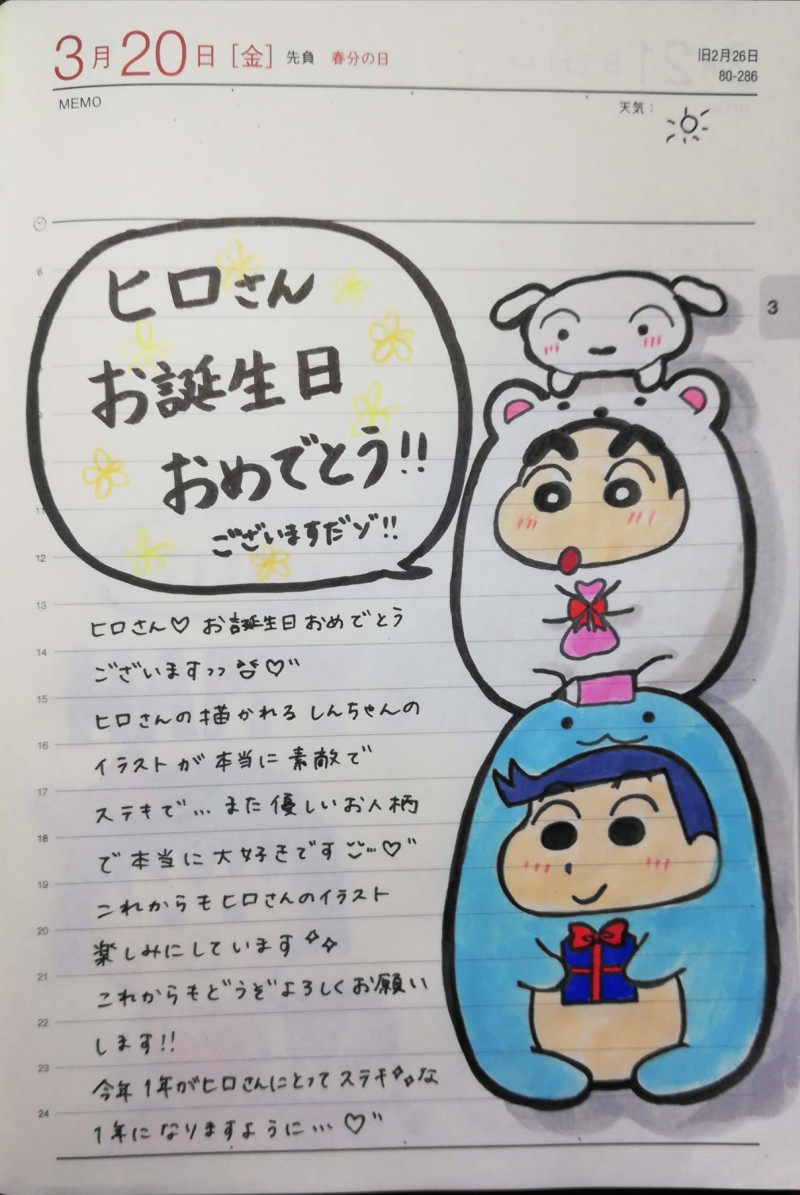 3月20日[金] 先負 春分の日
旧2月26日
80-286
MEMO
天気:
ヒロさん
お誕生日
おめでとう!!
ございますだゾ!!
3
6
11
12
13
14
15
16
17
18
19
20
21
22
23
24
ヒロさん♡ お誕生日おめでとう
ございますッッ ♡"
ヒロさんの描かれるしんちゃんの
イラストが本当に素敵で
ステキで…また優しいお人柄
で本当に大好きです…♡"
これからもヒロさんのイラスト
楽しみにしています✧✧
これからもどうぞよろしくお願い
します!!
今年1年がヒロさんにとってステキ✧✧な
1年になりますように…♡"